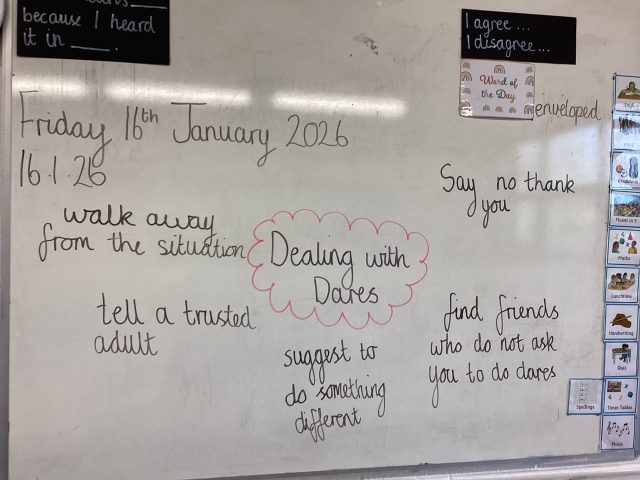 because I heard
it in ____.
I agree ...
I disagree ...
Word of
the Day
enveloped
Friday 16th January 2026
16.1.26
walk away
from the situation
Dealing with
Dares
Say no thank
you
tell a trusted
adult
suggest to
do something
different
find friends
who do not ask
you to do dares
English
Fluent in 5
Maths
Lunchtime
Handwriting
Quiz
Spellings
Times Tables
Music